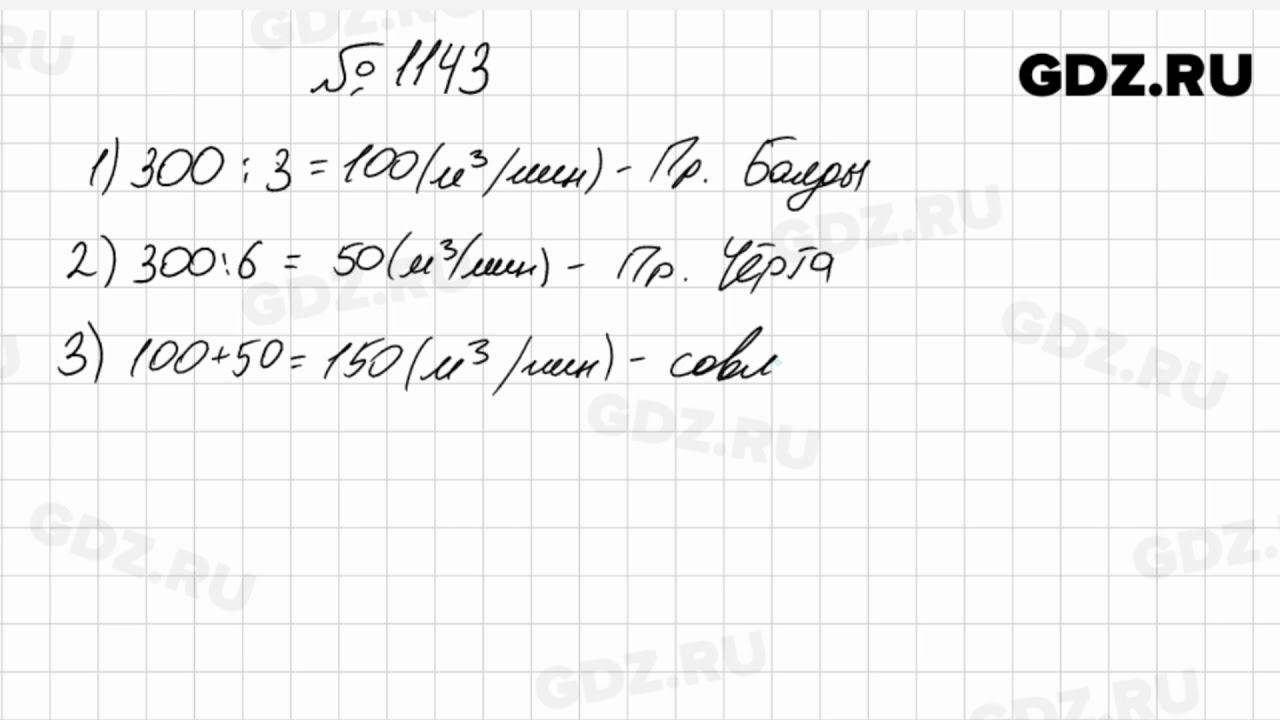 № 1143
GDZ.RU
1) 300 : 3 = 100 (м³/мин) - Пр. Балды
2) 300 : 6 = 50 (м³/мин) - Пр. Чёрта
3) 100 + 50 = 150 (м³/мин) - совл